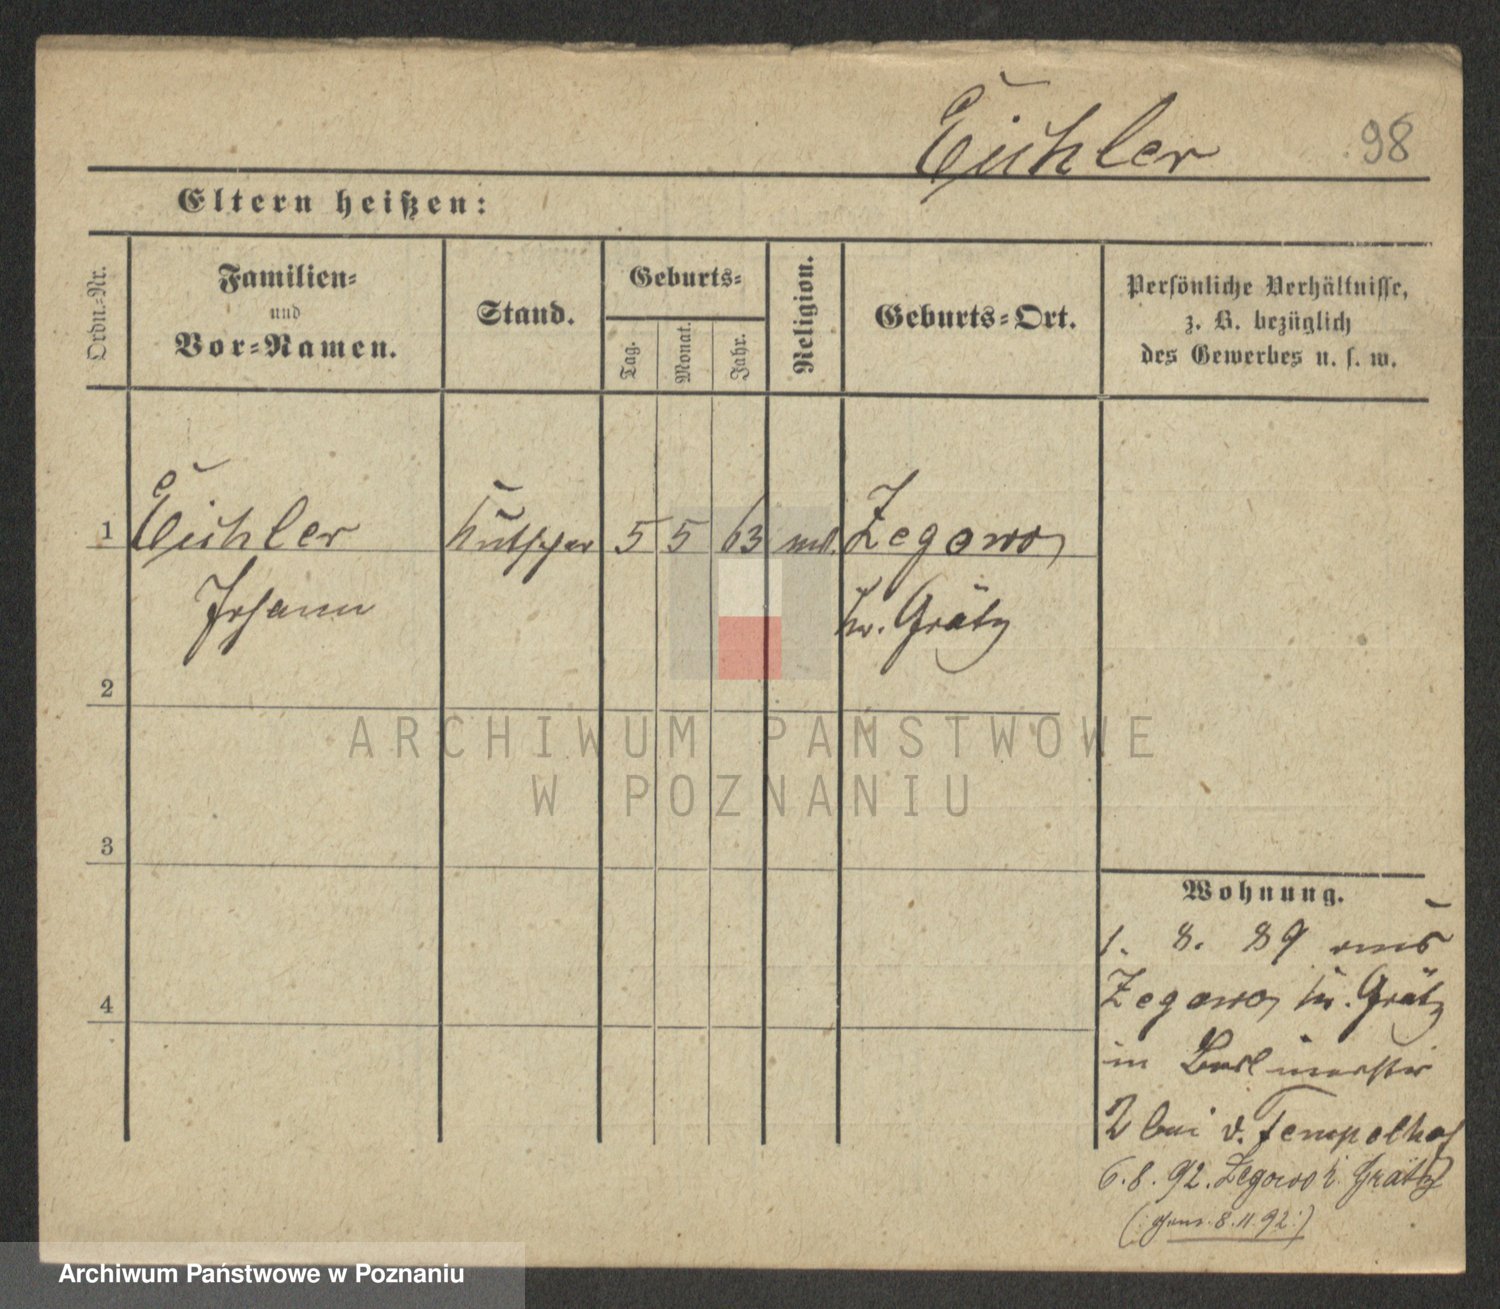 Eichler 98
Eltern heißen:
Ordn.-Nr.
Familien-
und
Vor-Namen.
Stand.
Geburts-
Tag.
Monat.
Jahr.
Religion.
Geburts-Ort.
Persönliche Verhältnisse,
z. B. bezüglich
des Gewerbes u. s. w.
1 Eichler Kutscher 5 5 63 Zegowo
Johann Kr. Grätz
2
ARCHIWUM PAŃSTWOWE
W POZNANIU
3
Wohnung.
1. 8. 89 aus
Zegowo, Kr. Grätz
in Berlinerstr
2 bei v. Tempelhof
6.8.92. Zegowo k. Grätz
8.11.92.)
4
Archiwum Państwowe w Poznaniu